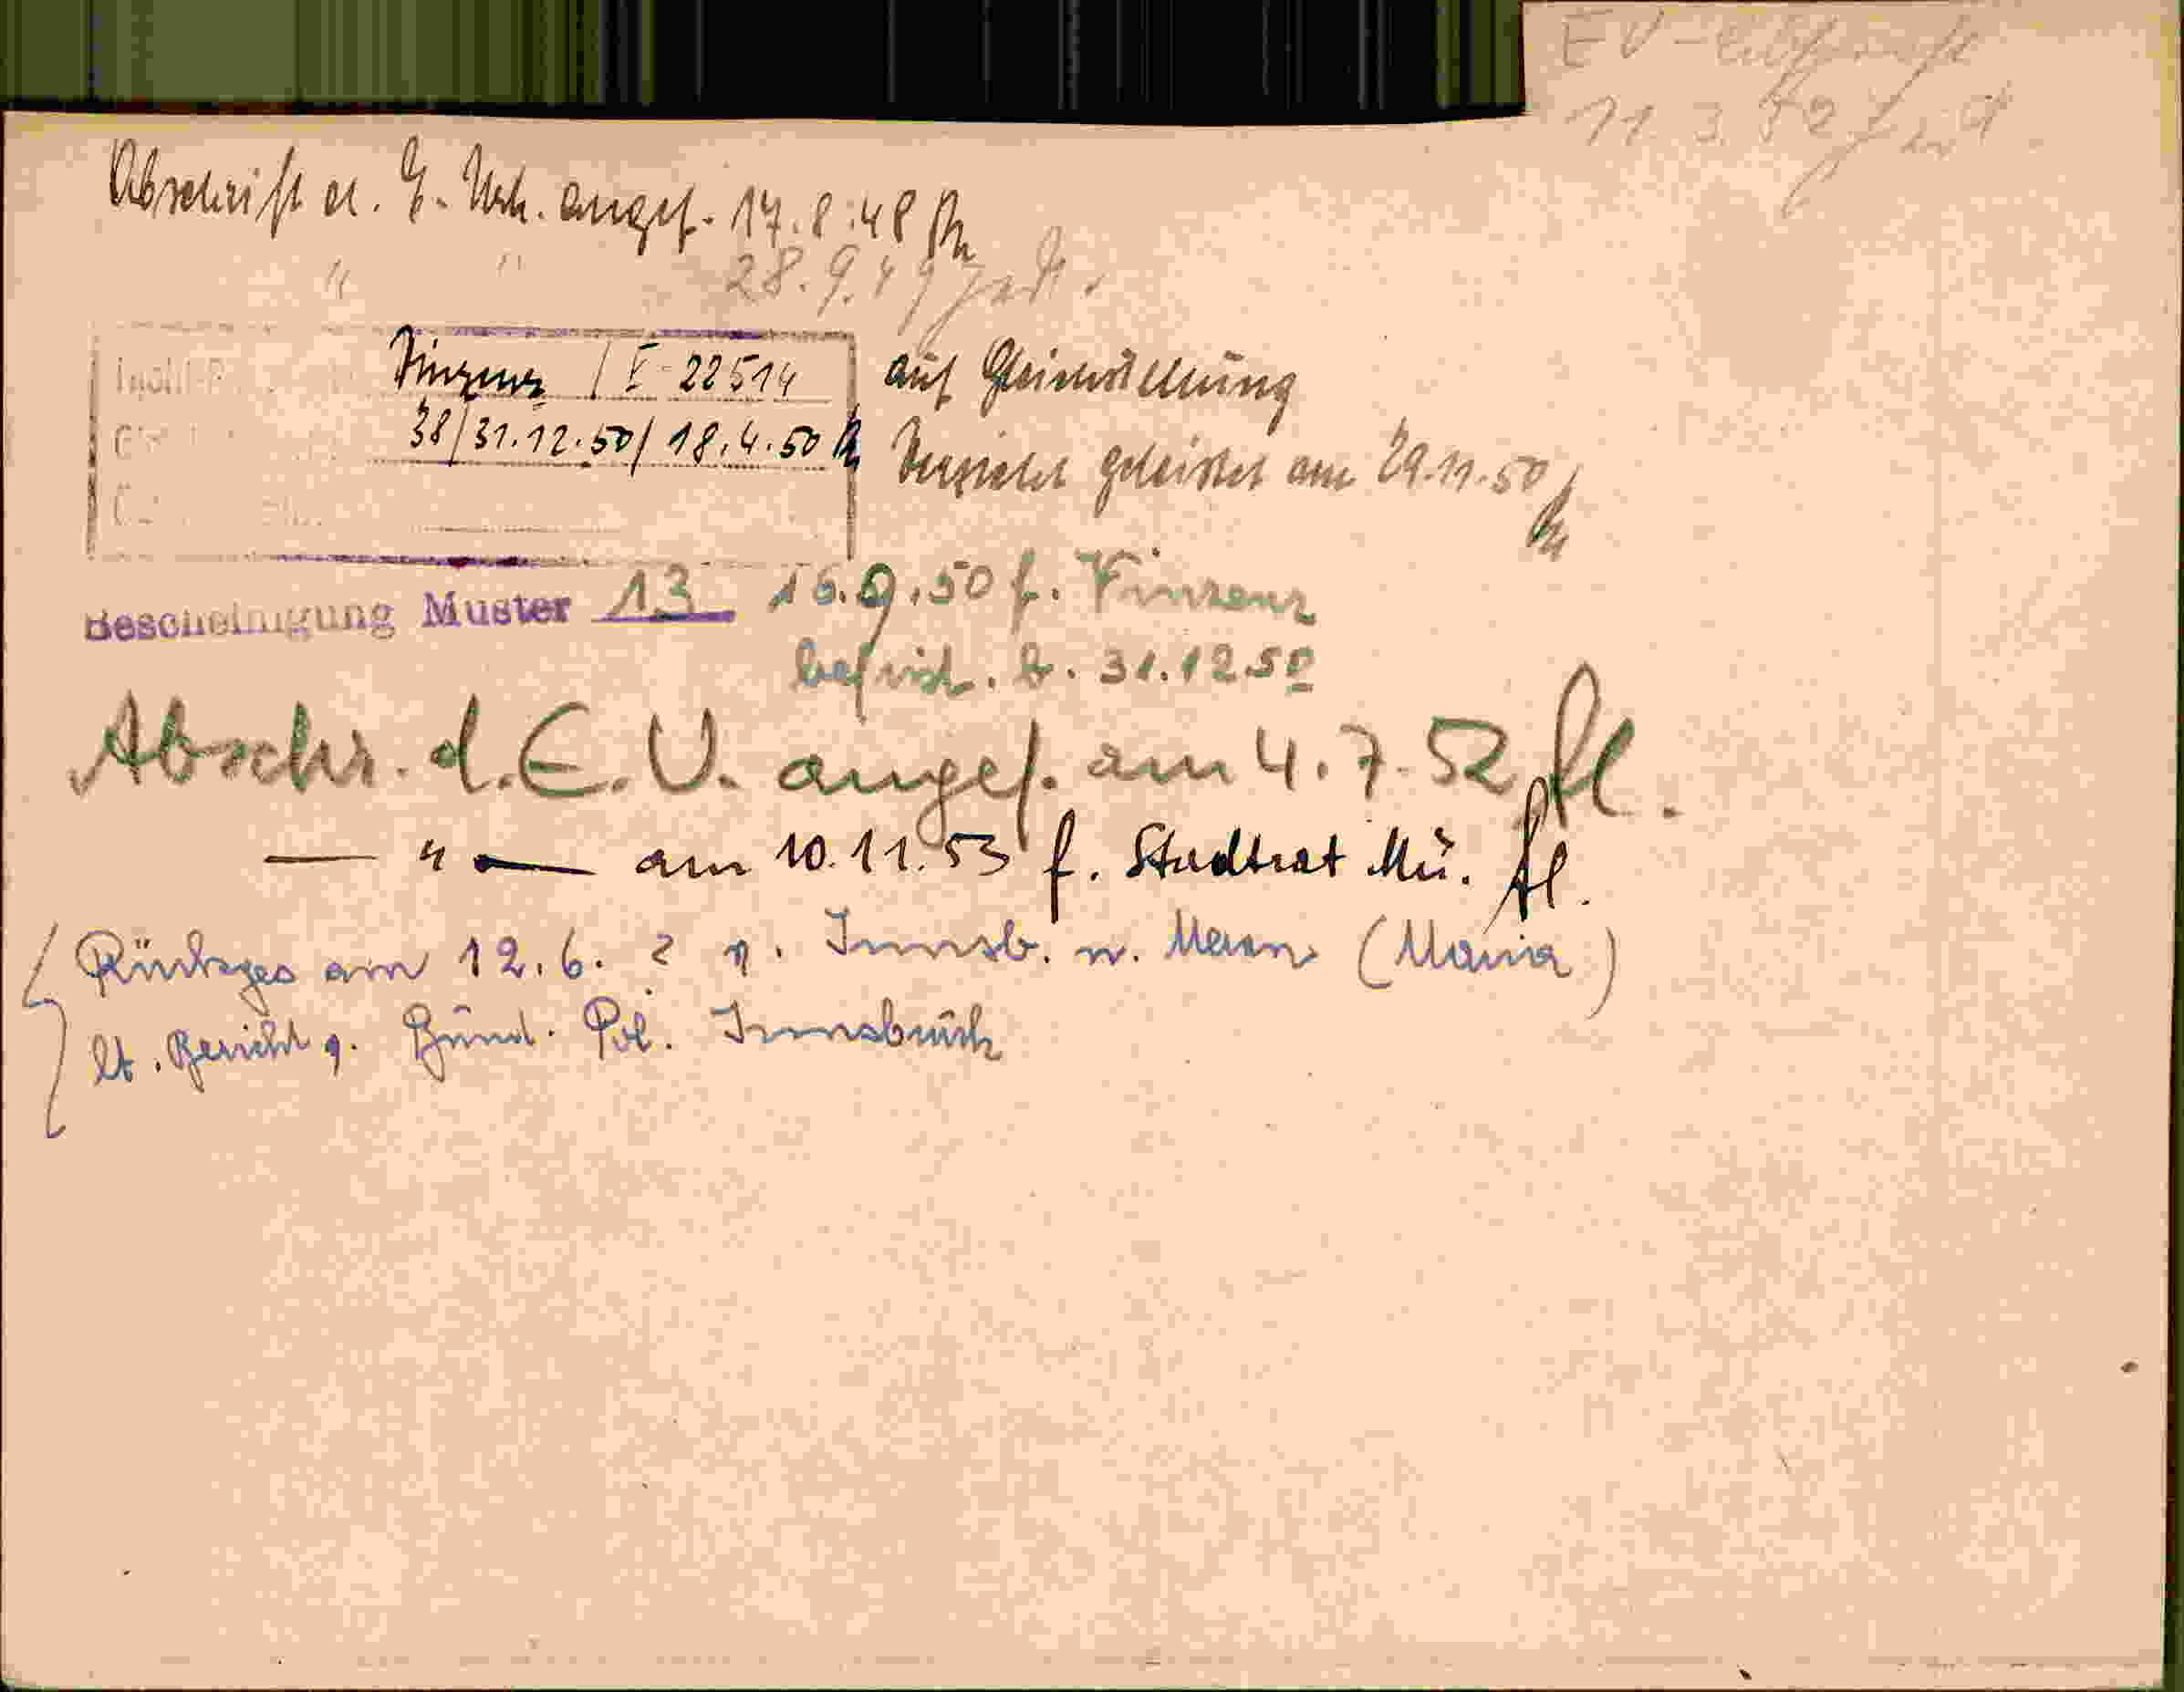 EV-
11.3.52
Abschrift d. E. Urk. angef. 17.8.48
" " 28.9.49
Vinzenz / I-22514
38/31.12.50/ 18.4.50
auf Gleichstellung
Verzicht geleistet am 29.11.50
Bescheinigung Muster 13 16.9.50 f. Vinzenz
befrist. b. 31.12.50
Abschr. d. E. U. angef. am 4.7.52 fl.
— " — am 10.11.53 f. Stadtrat Mü. fl.
am 12.6. Innsb. n. Meran (Maria)
lt. Bericht Pol. Innsbruck